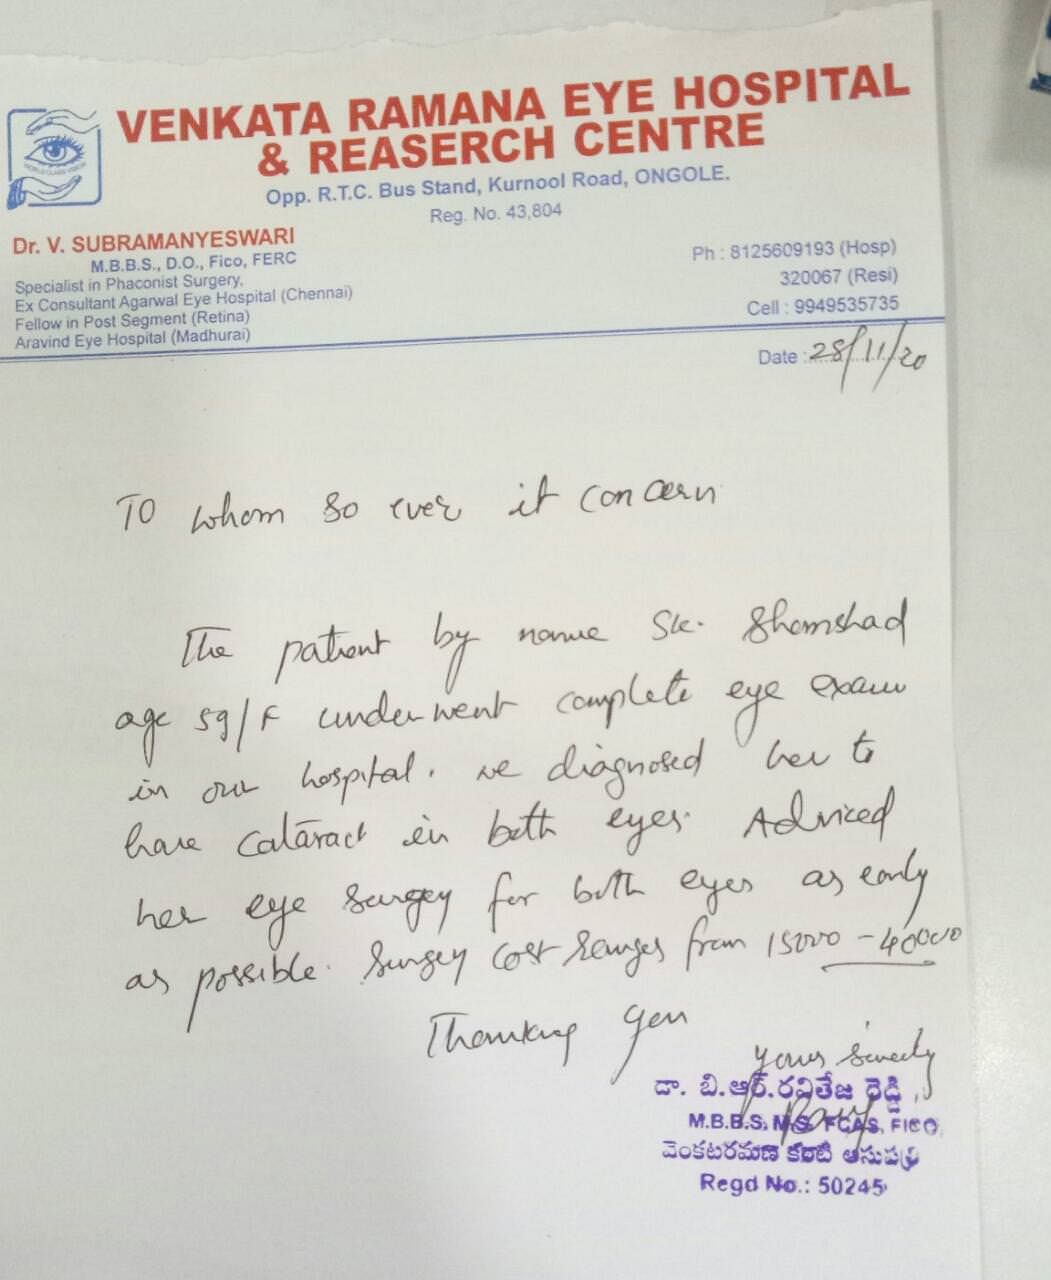 VENKATA RAMANA EYE HOSPITAL
& REASERCH CENTRE
Opp. R.T.C. Bus Stand, Kurnool Road, ONGOLE.
Reg. No. 43,804
Dr. V. SUBRAMANYESWARI
M.B.B.S., D.O., Fico, FERC
Specialist in Phaconist Surgery,
Ex Consultant Agarwal Eye Hospital (Chennai)
Fellow in Post Segment (Retina)
Aravind Eye Hospital (Madhurai)
Ph : 8125609193 (Hosp)
320067 (Resi)
Cell : 9949535735
Date : 28/11/20
TO whom so ever it concern
The patient by name Sk. Shamshad
age 59/F underwent complete eye exam
in our hospital. we diagnosed her to
have cataract in both eyes. Adviced
her eye surgey for both eyes as early
as possible. Surgey cost ranges from 15000 - 40000
Thanking you
yours sincerely
డా. బి.ఆర్.రవితేజ రెడ్డి
M.B.B.S. M.S. FCAS, FICO,
వెంకటరమణ కంటి ఆసుపత్రి
Regd No.: 50245